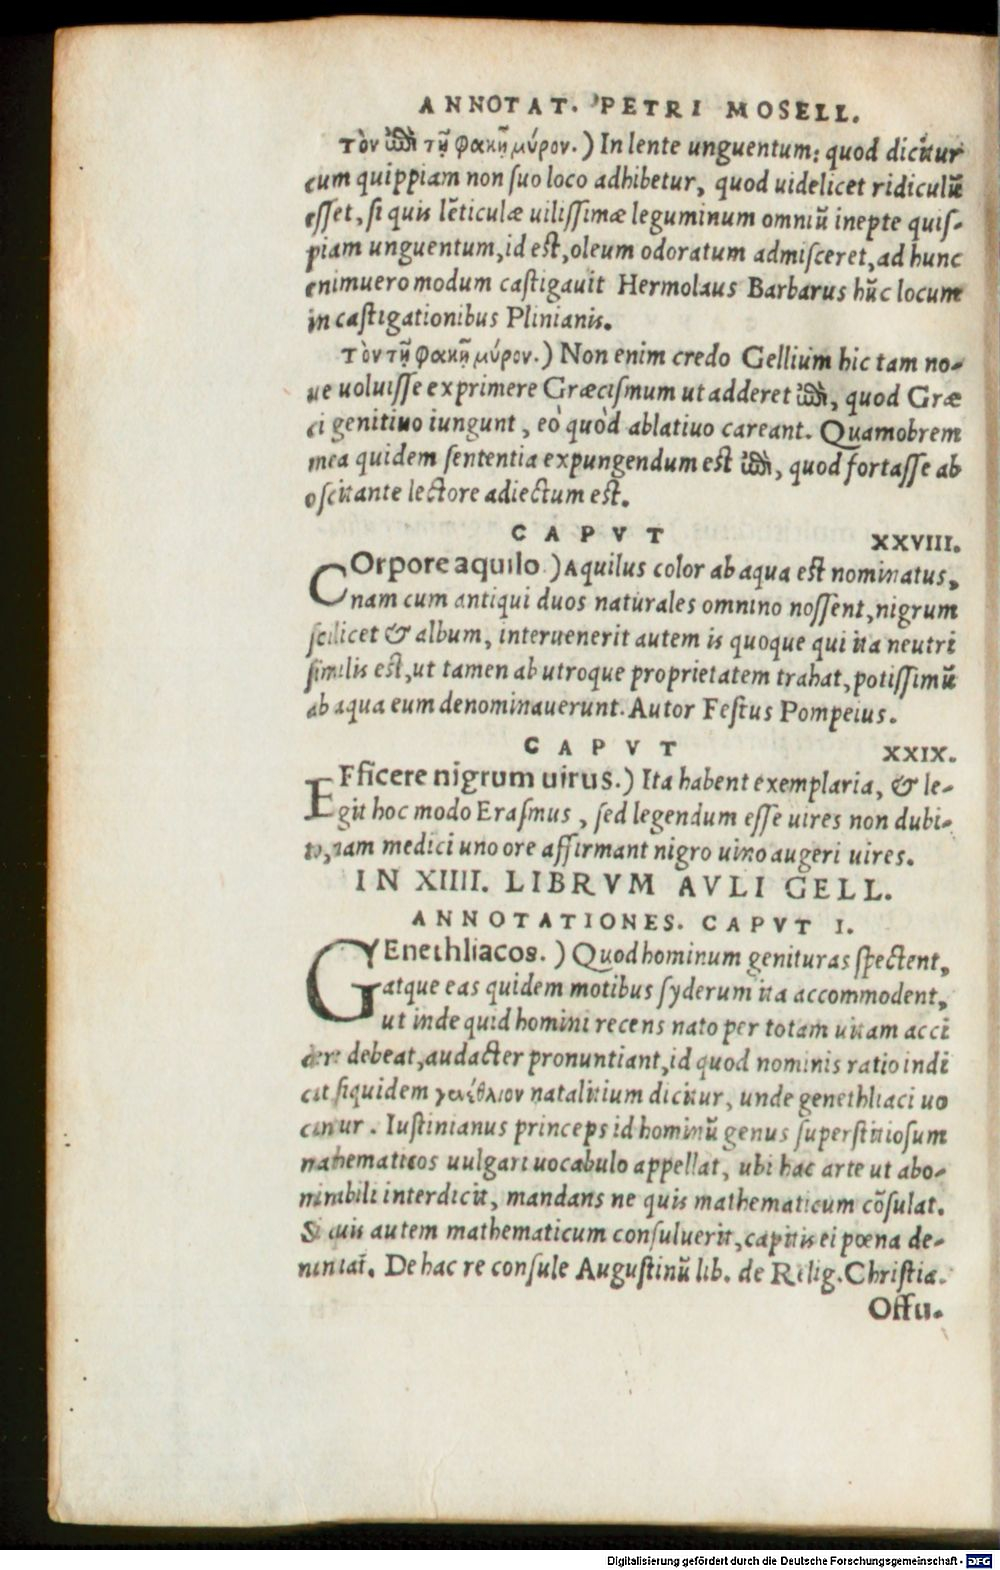 ANNOTAT. PETRI MOSELL.
τὸν ἐπὶ τῇ φακῇ μύρον.) In lente unguentum: quod dicitur
cum quippiam non suo loco adhibetur, quod uidelicet ridiculū
esset, si quis lēticulæ uilissimæ leguminum omniū inepte quis-
piam unguentum, id est, oleum odoratum admisceret, ad hunc
enimuero modum castigauit Hermolaus Barbarus hūc locum
in castigationibus Plinianis.
τὸν τῇ φακῇ μύρον.) Non enim credo Gellium hic tam no-
ue uoluisse exprimere Græcismum ut adderet ἐπὶ, quod Græ
ci genitiuo iungunt, eò quòd ablatiuo careant. Quamobrem
mea quidem sententia expungendum est ἐπὶ, quod fortasse ab
oscitante lectore adiectum est.
CAPVT XXVIII.
COrpore aquilo.) Aquilus color ab aqua est nominatus,
nam cum antiqui duos naturales omnino nossent, nigrum
scilicet & album, interuenerit autem is quoque qui ita neutri
similis est, ut tamen ab utroque proprietatem trahat, potissimū
ab aqua eum denominauerunt. Autor Festus Pompeius.
CAPVT XXIX.
EFficere nigrum uirus.) Ita habent exemplaria, & le-
git hoc modo Erasmus, sed legendum esse uires non dubi-
to, nam medici uno ore affirmant nigro uino augeri uires.
IN XIIII. LIBRVM AVLI GELL.
ANNOTATIONES. CAPVT I.
GEnethliacos.) Quod hominum genituras spectent,
atque eas quidem motibus syderum ita accommodent,
ut inde quid homini recens nato per totam uitam acci
dere debeat, audacter pronuntiant, id quod nominis ratio indi
cat siquidem γενέθλιον natalitium dicitur, unde genethliaci uo
cantur. Iustinianus princeps id hominū genus superstitiosum
mathematicos uulgari uocabulo appellat, ubi hac arte ut abo-
minabili interdicit, mandans ne quis mathematicum cōsulat.
Si quis autem mathematicum consuluerit, capitis ei pœna de-
niniat. De hac re consule Augustinū lib. de Relig. Christia.
Offu-
Digitalisierung gefördert durch die Deutsche Forschungsgemeinschaft - DFG